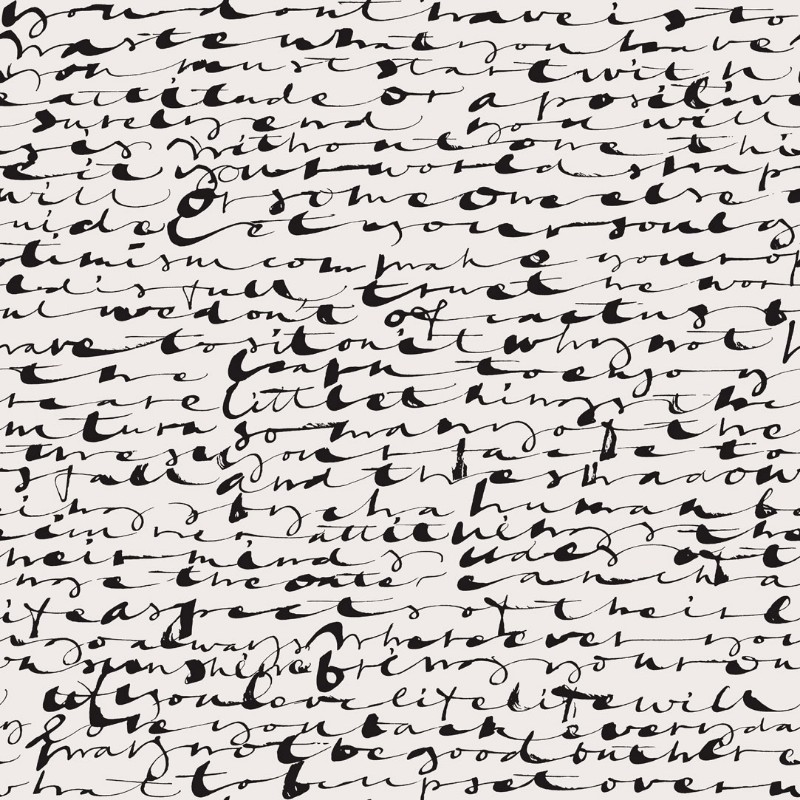 you dont have is to
waste what you have
you must start with
attitude or a positive
surely end you will
without one thi
e it your world shap
will Or someone else
uide Let your soul g
timism com make your op
ld is full trust he wor
ul we dont of cactus b
have to sit on it why not
the learn to enjoy
re are little things the
in turn so many of the
the su your face to
s fall and the shadow
ing by cha human b
attit things the
heir mind udes of
nge the oute can ch a
ife aspects of their l
go always Wherever you
sunshine Bring your
If you love life life will
love you back everyday
may not be good but here
hat to b upset over